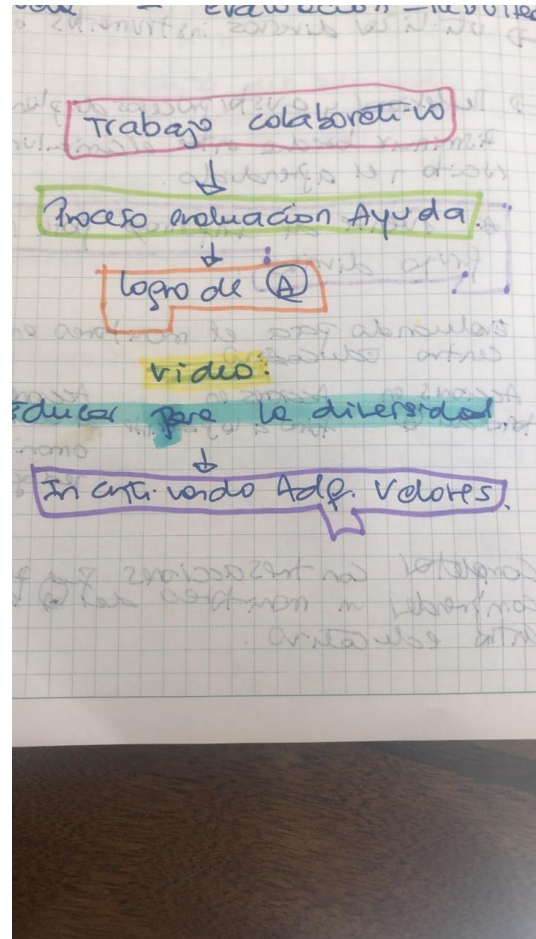 Trabajo colaborativo
↓
Proceso evaluación Ayuda.
↓
logro de Ⓐ
video:
Educar para la diversidad
↓
Incentivando Adq. Valores.